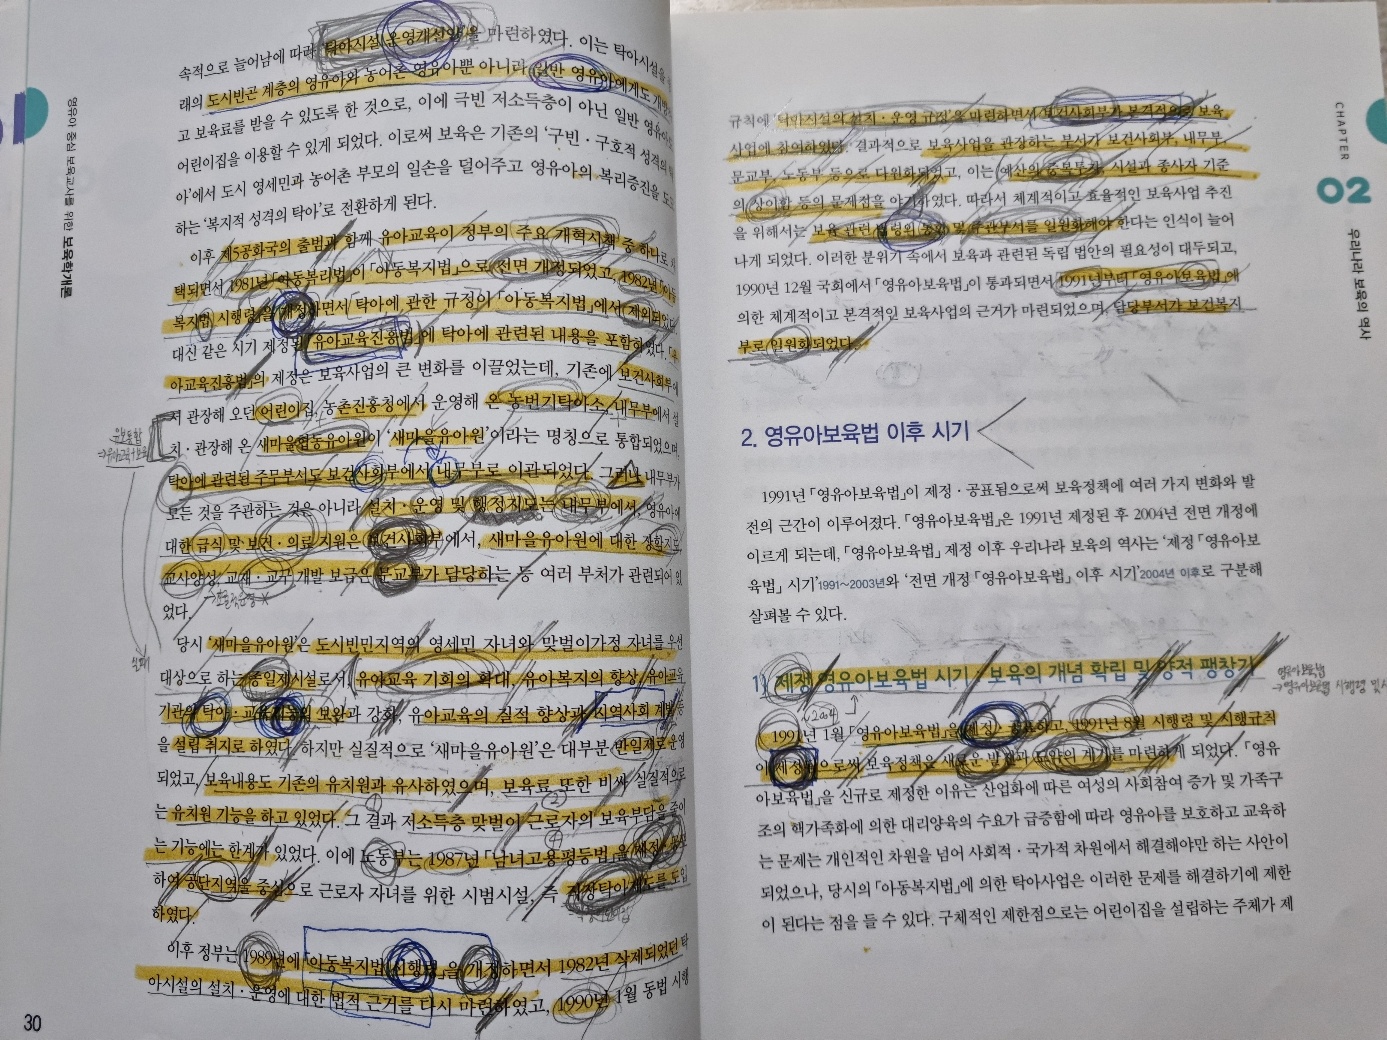 속적으로 늘어남에 따라 '탁아시설 운영개선안'을 마련하였다. 이는 탁아시설을
래의 도시빈곤 계층의 영유아와 농어촌 영유아뿐 아니라 일반 영유아에게도 개방
고 보육료를 받을 수 있도록 한 것으로, 이에 극빈 저소득층이 아닌 일반 영유아
어린이집을 이용할 수 있게 되었다. 이로써 보육은 기존의 '구빈·구호적 성격의
아'에서 도시 영세민과 농어촌 부모의 일손을 덜어주고 영유아의 복리증진을 도
하는 '복지적 성격의 탁아'로 전환하게 된다.
이후 제5공화국의 출범과 함께 유아교육이 정부의 주요 개혁시책 중 하나로
택되면서 1981년 「아동복리법」이 「아동복지법」으로 전면 개정되었고, 1982년 「아동
복지법」 시행령을 개정하면서 탁아에 관한 규정이 「아동복지법」에서 제외되었다.
대신 같은 시기 제정된 「유아교육진흥법」에 탁아에 관련된 내용을 포함하였다. 「유
아교육진흥법」의 제정은 보육사업의 큰 변화를 이끌었는데, 기존에 보건사회부에
서 관장해 오던 어린이집, 농촌진흥청에서 운영해 온 농번기탁아소, 내무부에서 설
치·관장해 온 새마을협동유아원이 '새마을유아원'이라는 명칭으로 통합되었으며,
탁아에 관련된 주무부서도 보건사회부에서 내무부로 이관되었다. 그러나 내무부가
모든 것을 주관하는 것은 아니라 설치·운영 및 행정지도는 내무부에서, 영유아에
대한 급식 및 보건·의료 지원은 보건사회부에서, 새마을유아원에 대한 장학지도,
교사양성, 교재·교구 개발 보급은 문교부가 담당하는 등 여러 부처가 관련되어 있
었다.
당시 '새마을유아원'은 도시빈민지역의 영세민 자녀와 맞벌이가정 자녀를 우선
대상으로 하는 종일제시설로서, 유아교육 기회의 확대, 유아복지의 향상, 유아교육
기관의 탁아·교육기능의 보완과 강화, 유아교육의 질적 향상과 지역사회 계발 등
을 설립 취지로 하였다. 하지만 실질적으로 '새마을유아원'은 대부분 반일제로 운영
되었고, 보육내용도 기존의 유치원과 유사하였으며, 보육료 또한 비싸 실질적으로
는 유치원 기능을 하고 있었다. 그 결과 저소득층 맞벌이 근로자의 보육부담을 줄이
는 기능에는 한계가 있었다. 이에 노동부는 1987년 「남녀고용평등법」을 제정·
하여 공단지역을 중심으로 근로자 자녀를 위한 시범시설, 즉 직장탁아제도를 도입
하였다.
이후 정부는 1989년에 「아동복지법 시행령」을 개정하면서 1982년 삭제되었던 탁
아시설의 설치·운영에 대한 법적 근거를 다시 마련하였고, 1990년 1월 동법 시행
30
영유아 중심 보육교사를 위한 보육학개론
유보통합
실패
규칙에 '탁아시설의 설치·운영 규정'을 마련하면서 보건사회부가 본격적으로 보육
사업에 참여하였다. 결과적으로 보육사업을 관장하는 부서가 보건사회부, 내무부,
문교부, 노동부 등으로 다원화되었고, 이는 예산의 중복투자, 시설과 종사자 기준
의 상이함 등의 문제점을 야기하였다. 따라서 체계적이고 효율적인 보육사업 추진
을 위해서는 보육 관련 법령의 통합 및 주관부서를 일원화해야 한다는 인식이 늘어
나게 되었다. 이러한 분위기 속에서 보육과 관련된 독립 법안의 필요성이 대두되고,
1990년 12월 국회에서 「영유아보육법」이 통과되면서 1991년부터 「영유아보육법」에
의한 체계적이고 본격적인 보육사업의 근거가 마련되었으며, 담당부서가 보건복지
부로 일원화되었다.
2. 영유아보육법 이후 시기
1991년 「영유아보육법」이 제정·공표됨으로써 보육정책에 여러 가지 변화와 발
전의 근간이 이루어졌다. 「영유아보육법」은 1991년 제정된 후 2004년 전면 개정에
이르게 되는데, 「영유아보육법」 제정 이후 우리나라 보육의 역사는 '제정 「영유아보
육법」 시기'1991~2003년와 '전면 개정 「영유아보육법」 이후 시기'2004년 이후로 구분해
살펴볼 수 있다.
1) 제정 영유아보육법 시기 : 보육의 개념 확립 및 양적 팽창기
영유아보육법
→영유아보육법 시행령 및
~2004
1991년 1월 「영유아보육법」을 제정·공표하고, 1991년 8월 시행령 및 시행규칙
이 제정됨으로써 보육정책을 새로운 발전과 도약의 계기를 마련하게 되었다. 「영유
아보육법」을 신규로 제정한 이유는 산업화에 따른 여성의 사회참여 증가 및 가족구
조의 핵가족화에 의한 대리양육의 수요가 급증함에 따라 영유아를 보호하고 교육하
는 문제는 개인적인 차원을 넘어 사회적·국가적 차원에서 해결해야만 하는 사안이
되었으나, 당시의 「아동복지법」에 의한 탁아사업은 이러한 문제를 해결하기에 제한
이 된다는 점을 들 수 있다. 구체적인 제한점으로는 어린이집을 설립하는 주체가 제
CHAPTER
02
우리나라 보육의 역사